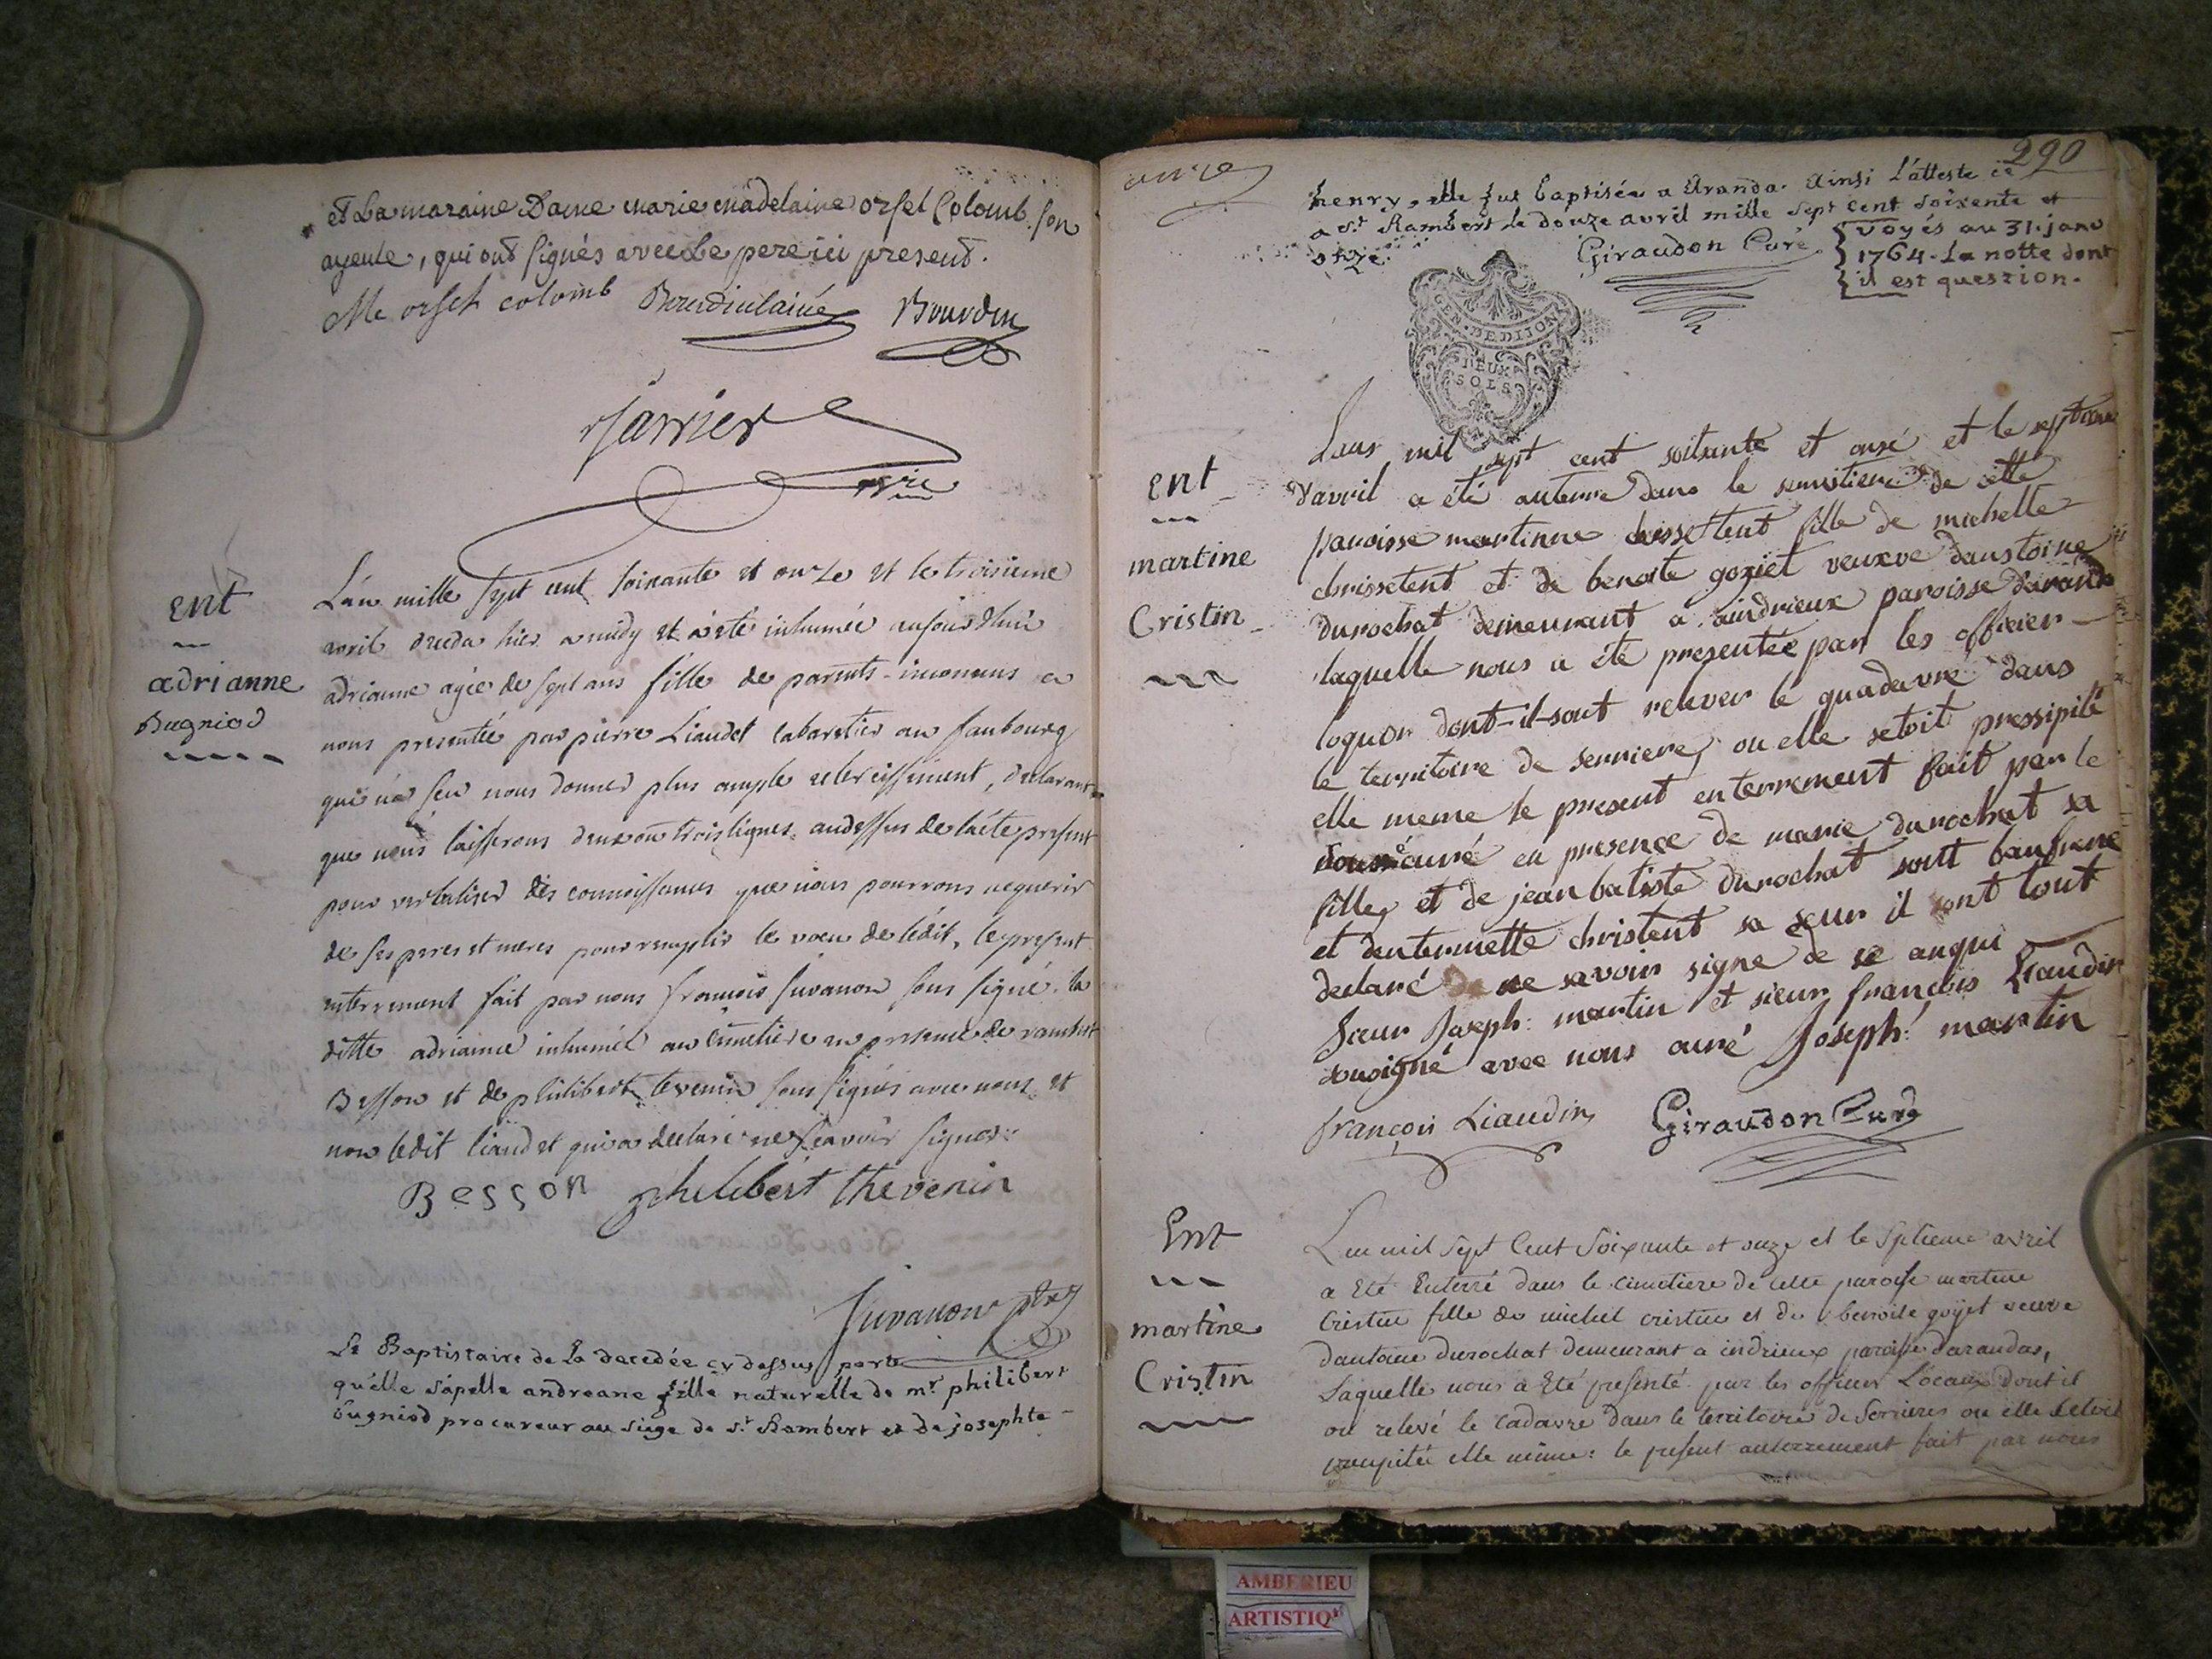 et La maraine Dame marie madelaine orsel Colomb. son
ayeule, qui ont signés avec Le pere ici present.
Me orsel colomb Bourdin lainé Bourdin
Jarrier
vic
ent
adrianne
Bugniod
L'an mille sept cent soixante et onze et le troisieme
avril deceda hier a midy et a été inhumée aujourdhui
adrianne agée de sept ans fille de parents inconnus a
nous presentée par pierre Liaudet cabaretier au faubourg
qui n'a seu nous donner plus ample eclercissement, declarant
que nous laisserons deux ou trois lignes au dessus de l'acte present
pour verbaliser des connoissances que nous pourrons acquerir
de ses peres et meres pour remplir le voeu de l'édit, le present
enterrement fait par nous françois Juvanon sous signé. la
ditte adrianne inhumée au cimetiere en presence de rambert
Besson et de philibert tevenin sous signés avec nous et
non ledit liaudet qui a declaré ne sçavoir signer
Besson philibert thevenin
Juvanon ptre
Le Baptistaire de La decedée cy dessus porte
qu'elle s'apelle andreane fille naturelle de mr philibert
bugniod procureur au siege de st Rambert et de josephte
290
henry, elle fut baptisée a Aranda. Ainsi l'atteste ce
a st Rambert le douze avril mille sept cent soixente et
onze. Giraudon Curé
voyés au 31. janv
1764. La notte dont
il est question.
GEN. DE DIJON
DEUX
SOLS
ent
martine
Cristin
Lans mil sept cent soitsante et onse et le septieme
d'avril a été auterre dans le semitiere de cette
paroisse martinne chrissettent fille de michelle
chrissetent et de benoite goyiet veuxve daustoine
durochat demeurant a aindrieux paroisse daranda
laquelle nous a été presentée par les officier
loquor dont-il-sont relever le quadavre dans
le territoire de serriere, ou elle setoit pressipité
elle meme le present enterrement fait par le
curé en presence de marie durochat sa
fille, et de jean batiste durochat sont baufrere
et dentermette christent sa seur il sont tout
declaré de ne savoir signe de se anqui
sieur Joseph: martin et sieur françois Liaudin
sousigné avec nous curé Joseph: martin
françois Liaudin Giraudon Curé
Ent
martine
Cristin
L an mil sept Cent Soixante et onze et le septieme avril
a Eté Enterré dans le cimetiere de cette paroisse martine
Cristin fille de michel cristin et de benoite goyet veuve
dantoine durochat demeurant a indrieux paroisse darandas,
Laquelle nous a Eté presenté par les officiers Locaux dont il
on relevé le Cadavre dans le territoire de Serrieres ou elle setoit
precipitée elle même: le present anterrement fait par nous
AMBERIEU
ARTISTIQ